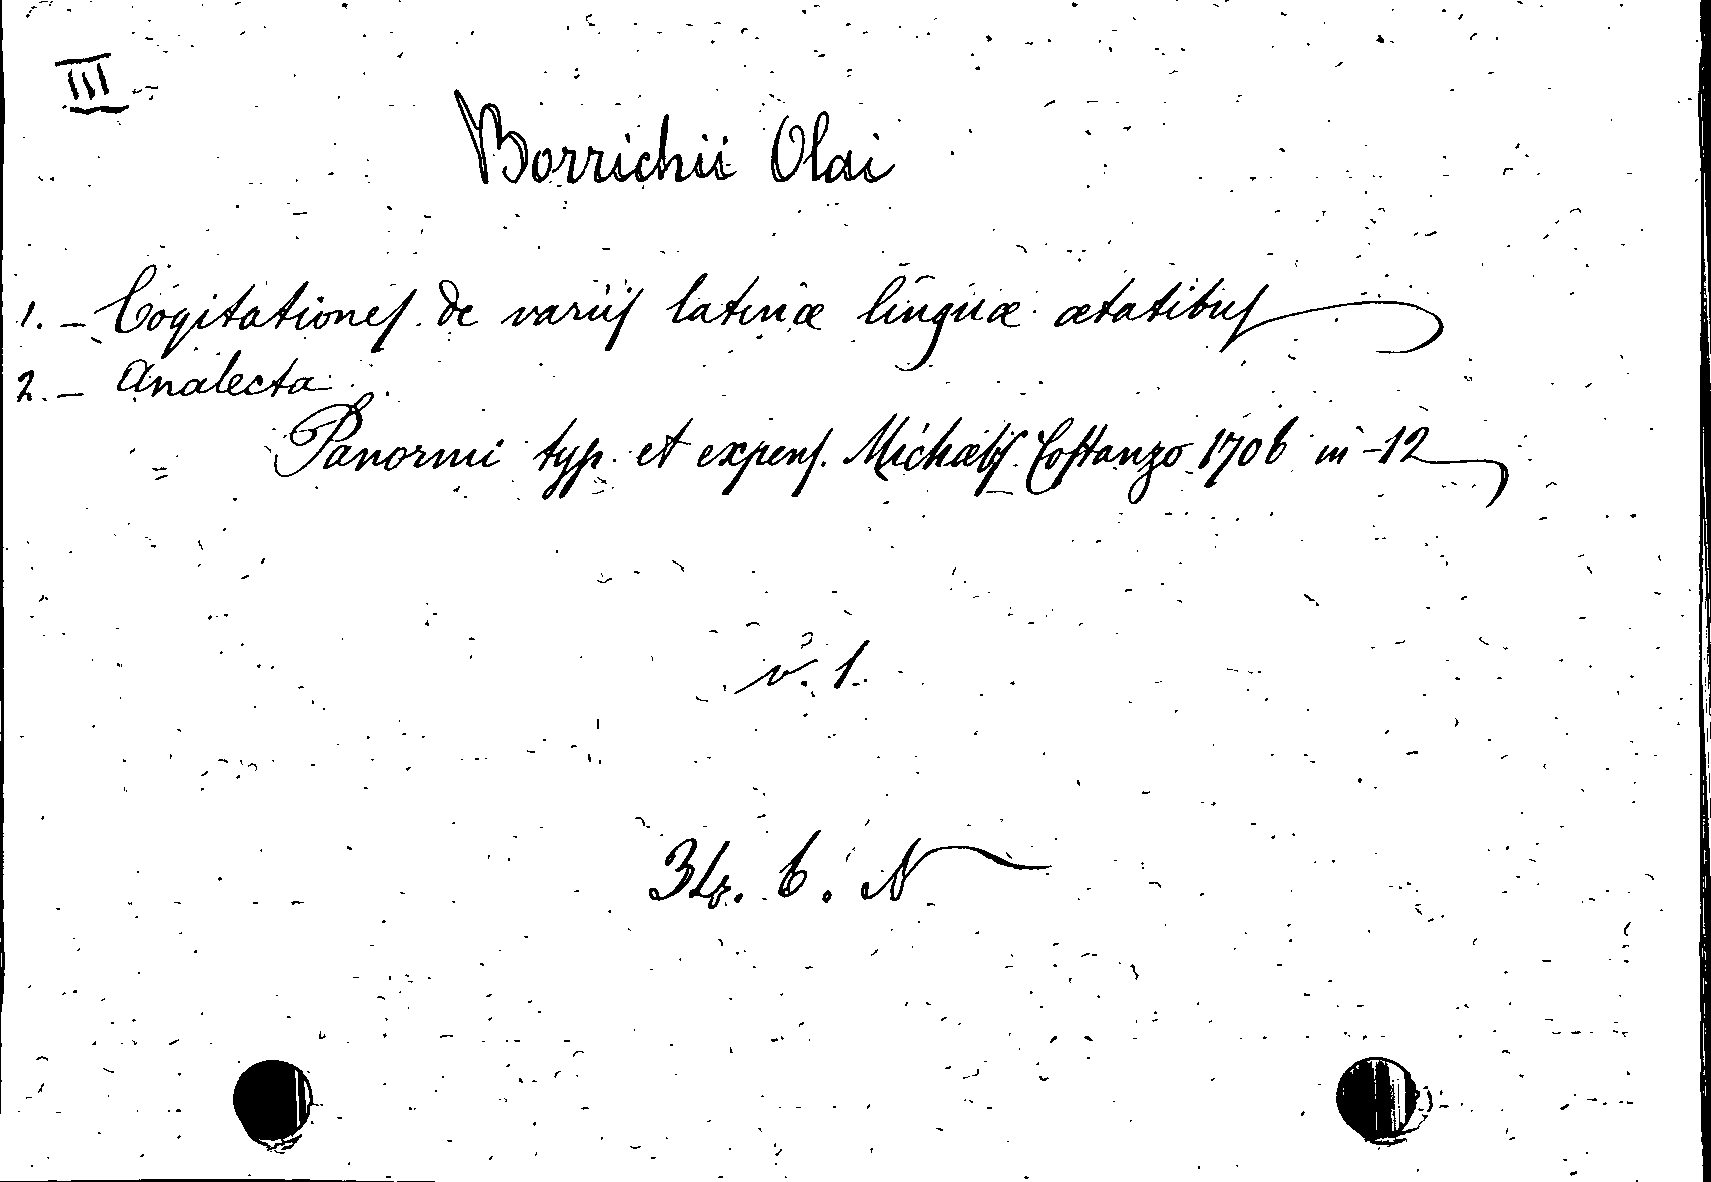 III
Borrichii Olai
1. - Cogitationes de variis latinæ linguæ ætatibus
2. - Analecta
Panormi typ. et expens. Michælis Costanzo 1706 in-12
v. 1.